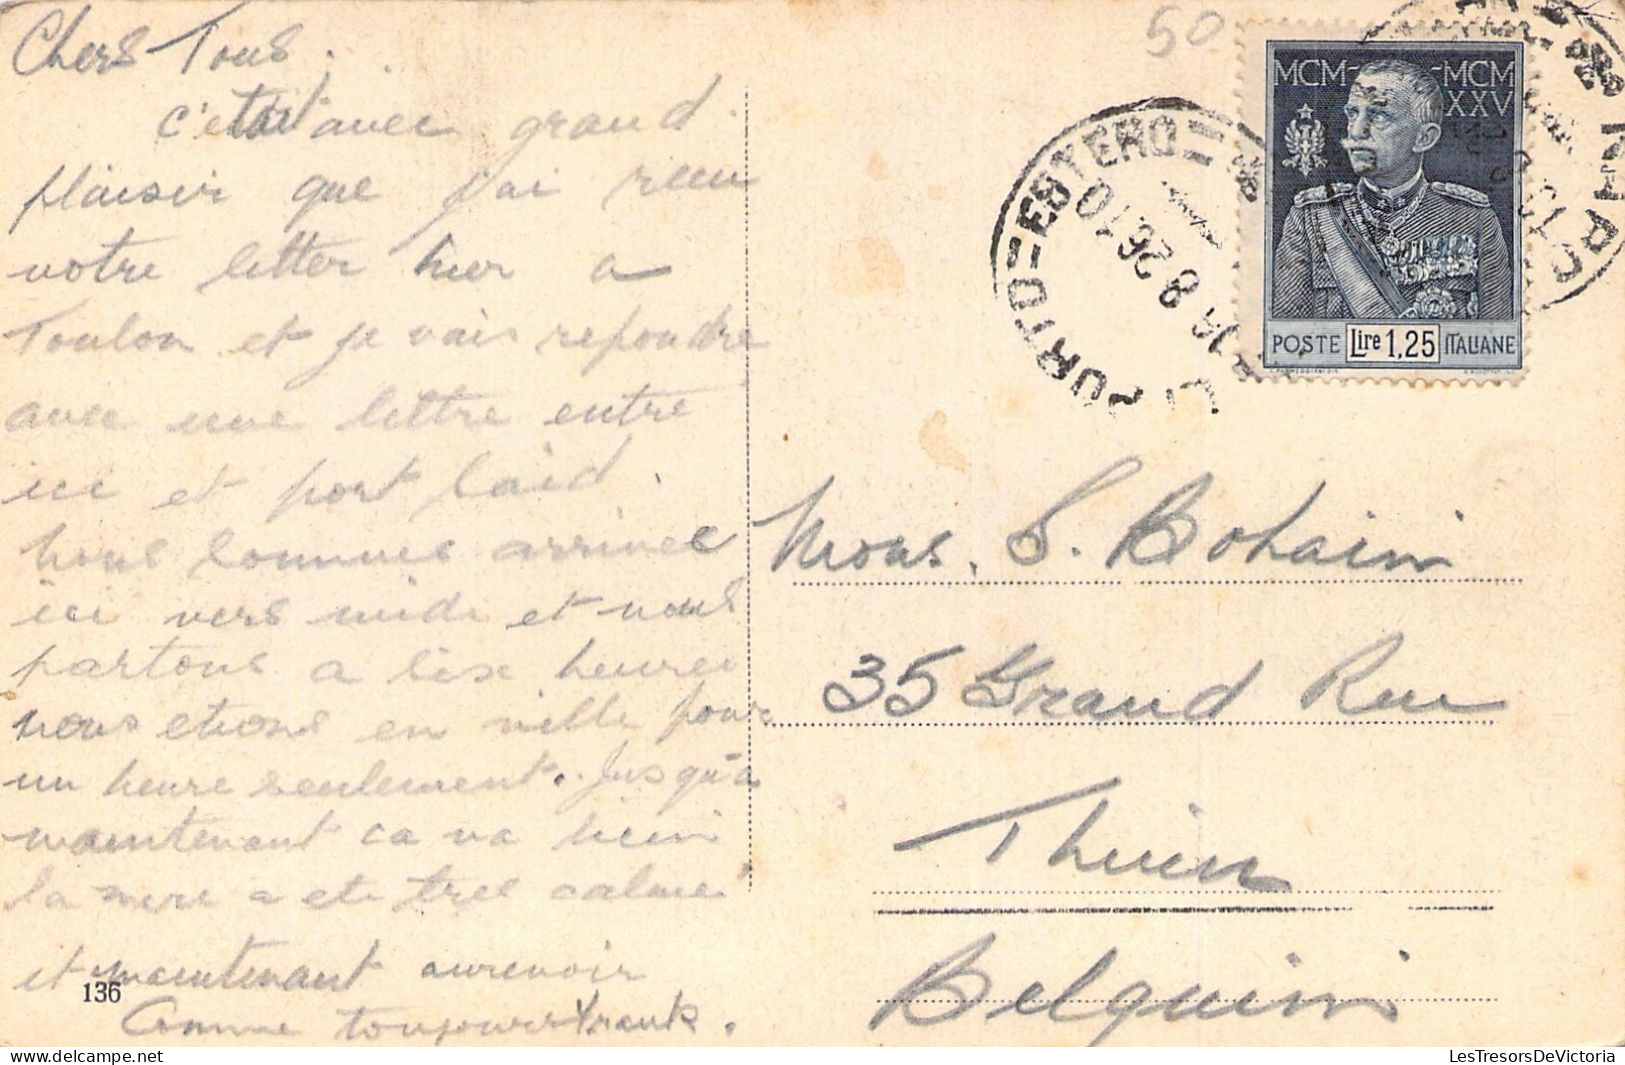 Chers Tous.
c'etait avec grand
plaisir que j'ai recu
votre letter hier a
Toulon et je vais repondre
avec une lettre entre
ici et port Said.
Nous sommes arrivee
ici vers midi et nous
partons a six heures
nous etions en ville pour
un heure seulement. Jusqu'a
maintenant ca va bien
la mere a ete tres calme
et maintenant aurevoir
Comme toujours Frank.
136
50
MCM- -MCM
XXV
POSTE Lire 1,25 ITALIANE
PORTO=ESTERO=
8 26 10
Mons. S. Bohain
35 Grand Rue
Thuin
Belguim
LesTresorsDeVictoria